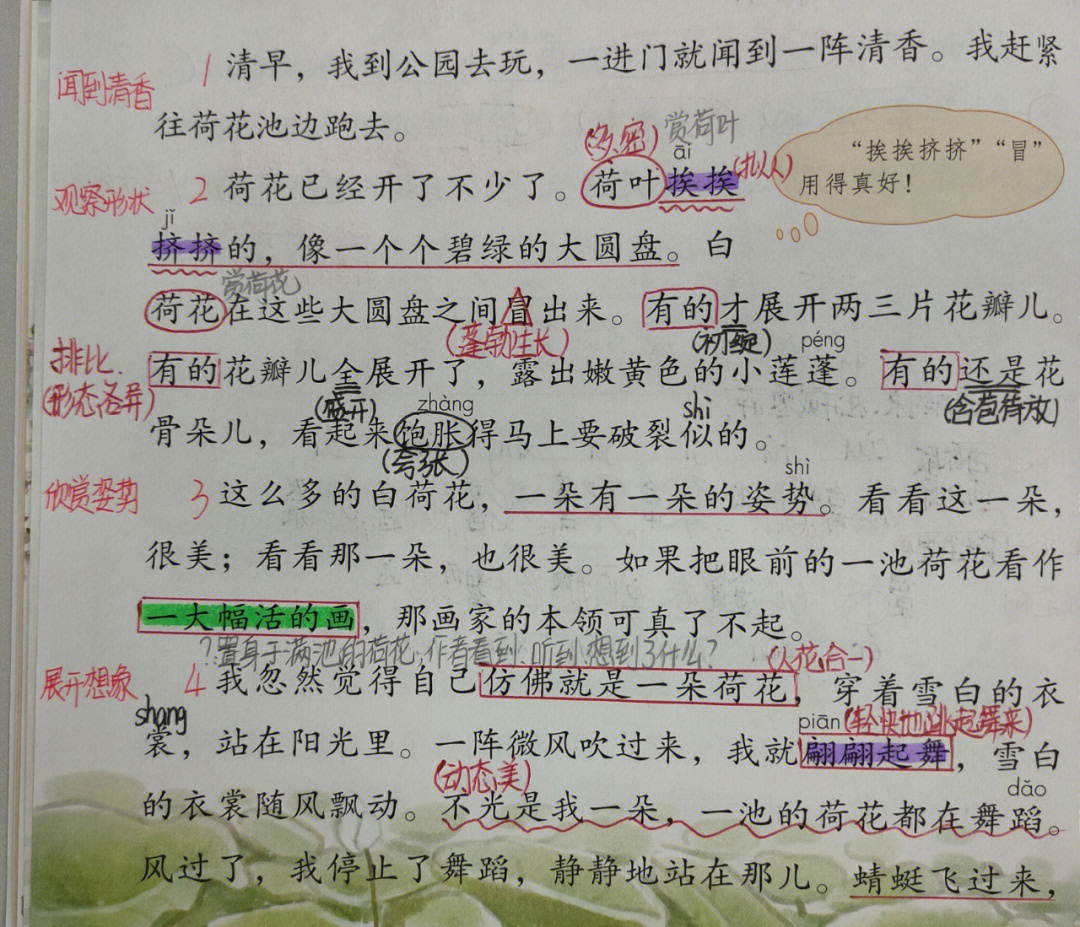 闻到清香
1 清早，我到公园去玩，一进门就闻到一阵清香。我赶紧
往荷花池边跑去。
(多、密) 赏荷叶
āi
“挨挨挤挤”“冒”
用得真好！
观察形状
2 荷花已经开了不少了。荷叶挨挨(拟人)
jǐ
挤挤的，像一个个碧绿的大圆盘。白
赏荷花
荷花在这些大圆盘之间冒出来。有的才展开两三片花瓣儿。
(蓬勃生长) (初绽) péng
排比
(形态各异)
有的花瓣儿全展开了，露出嫩黄色的小莲蓬。有的还是花
(盛开) zhàng shì (含苞待放)
骨朵儿，看起来饱胀得马上要破裂似的。
(夸张)
欣赏姿势
shì
3 这么多的白荷花，一朵有一朵的姿势。看看这一朵，
很美；看看那一朵，也很美。如果把眼前的一池荷花看作
一大幅活的画，那画家的本领可真了不起。
?置身于满池的荷花，作者看到、听到、想到了什么？ (人花合一)
展开想象
4 我忽然觉得自己仿佛就是一朵荷花，穿着雪白的衣
shang piān (轻快地跳起舞来)
裳，站在阳光里。一阵微风吹过来，我就翩翩起舞，雪白
(动态美) dǎo
的衣裳随风飘动。不光是我一朵，一池的荷花都在舞蹈。
风过了，我停止了舞蹈，静静地站在那儿。蜻蜓飞过来，